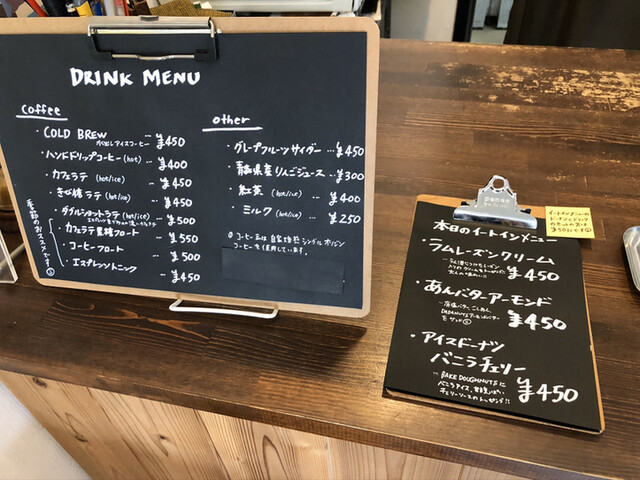 DRINK MENU
coffee
・COLD BREW … ¥450
水出しアイスコーヒー
・ハンドドリップコーヒー(hot) … ¥400
・カフェラテ (hot/ice) … ¥450
・きび糖ラテ (hot/ice) … ¥450
・ダブルショットラテ (hot/ice) … ¥500
・カフェラテ黒糖フロート … ¥550
・コーヒーフロート … ¥500
・エスプレッソトニック … ¥500
季節のおススメです
other
・グレープフルーツサイダー … ¥450
・青森県産りんごジュース … ¥300
・紅茶 (hot/ice) … ¥400
・ミルク (hot/ice) … ¥250
コーヒー豆は自家焙煎シングルオリジン
コーヒーを使用しています。
本日のイートインメニュー
・ラムレーズンクリーム
¥450
・あんバターアーモンド
¥450
・アイスドーナツ
バニラチェリー
BAKE DOUGHNUTSに
バニラアイス、甘酸っぱい
チェリーソースのトッピング!!
¥450
イートインメニューの